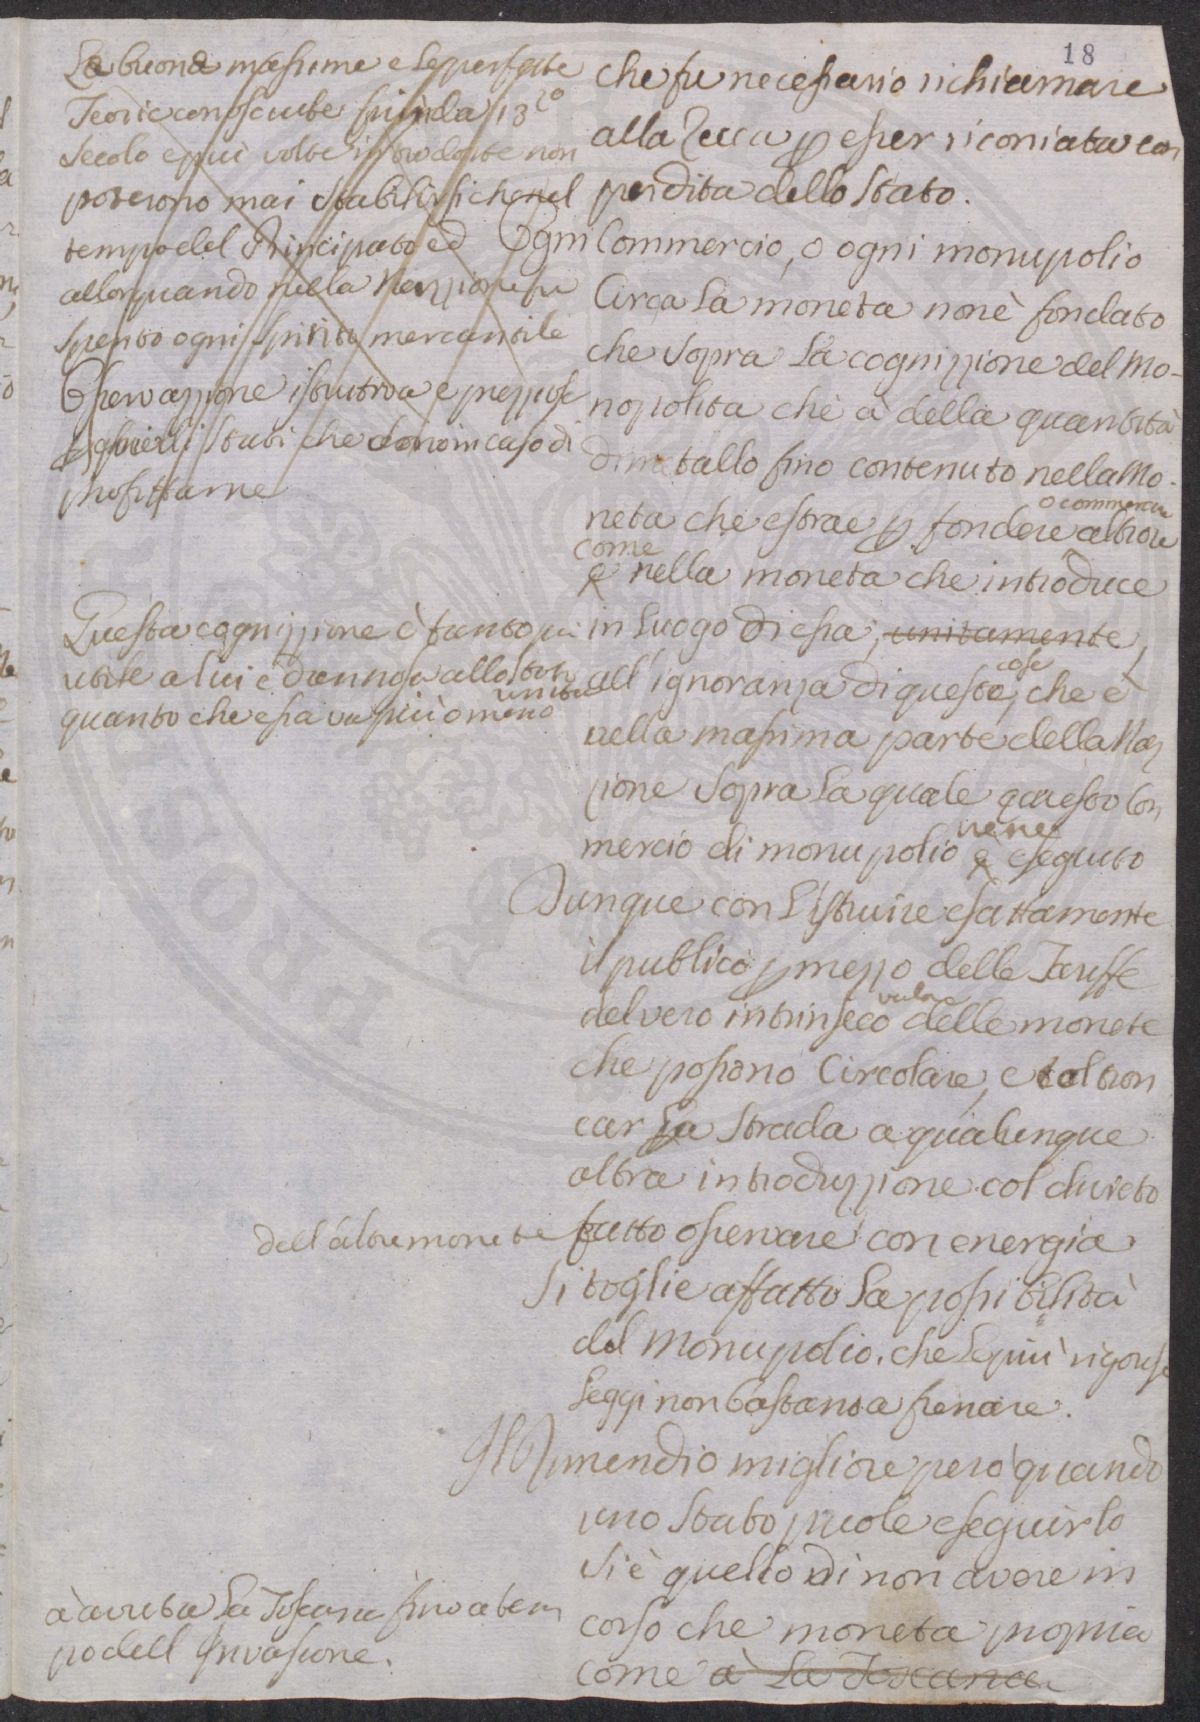 18
La buona massime e le perfette
Teorie conosciute sin da 13.zo
Secolo e più volte introdotte non
poterono mai stabilirsi che nel
tempo del Principato ed
allor quando nella Nazzione fu
spento ogni spirito mercantile
Osservazzione istrutiva e prezziosa
quelli Stati che sono in caso di
profittarne
Questa cognizzione è tanto più
utile a lui e dannosa allo Stato
quanto che essa va più o meno unita
dell'altre monete
à avuta La Toscana fino a tem
po dell Invasione.
che fu necessario richiamare
alla Zecca p esser riconiata con
perdita dello Stato.
Ogni Commercio, o ogni monupolio
Circa La moneta non è fondato
che sopra La cognizzione del Mo-
nopolista che à della quantità
di metallo fino contenuto nella Mo-
neta che estrae p fondere o commerciare altrove
come e nella moneta che introduce
in Luogo di essa, unitamente
all'ignoranza di queste cose, che è
nella massima parte della Naz
zione sopra La quale questo Com
mercio di monupolio è viene eseguito
Dunque con L'istruire esattamente
il publico p mezzo delle Tariffe
del vero intrinseco valore delle monete
che possano Circolare, e col tron
car La Strada a qualunque
altra introduzzione col divieto
fatto osservare con energia
si toglie affatto La possibilità
del Monupolio, che Le più rigorose
Leggi non bastan a frenare.
Il Rimendio migliore però quando
uno Stato puole eseguirlo
si è quello di non avere in
corso che moneta propria
come à La Toscana